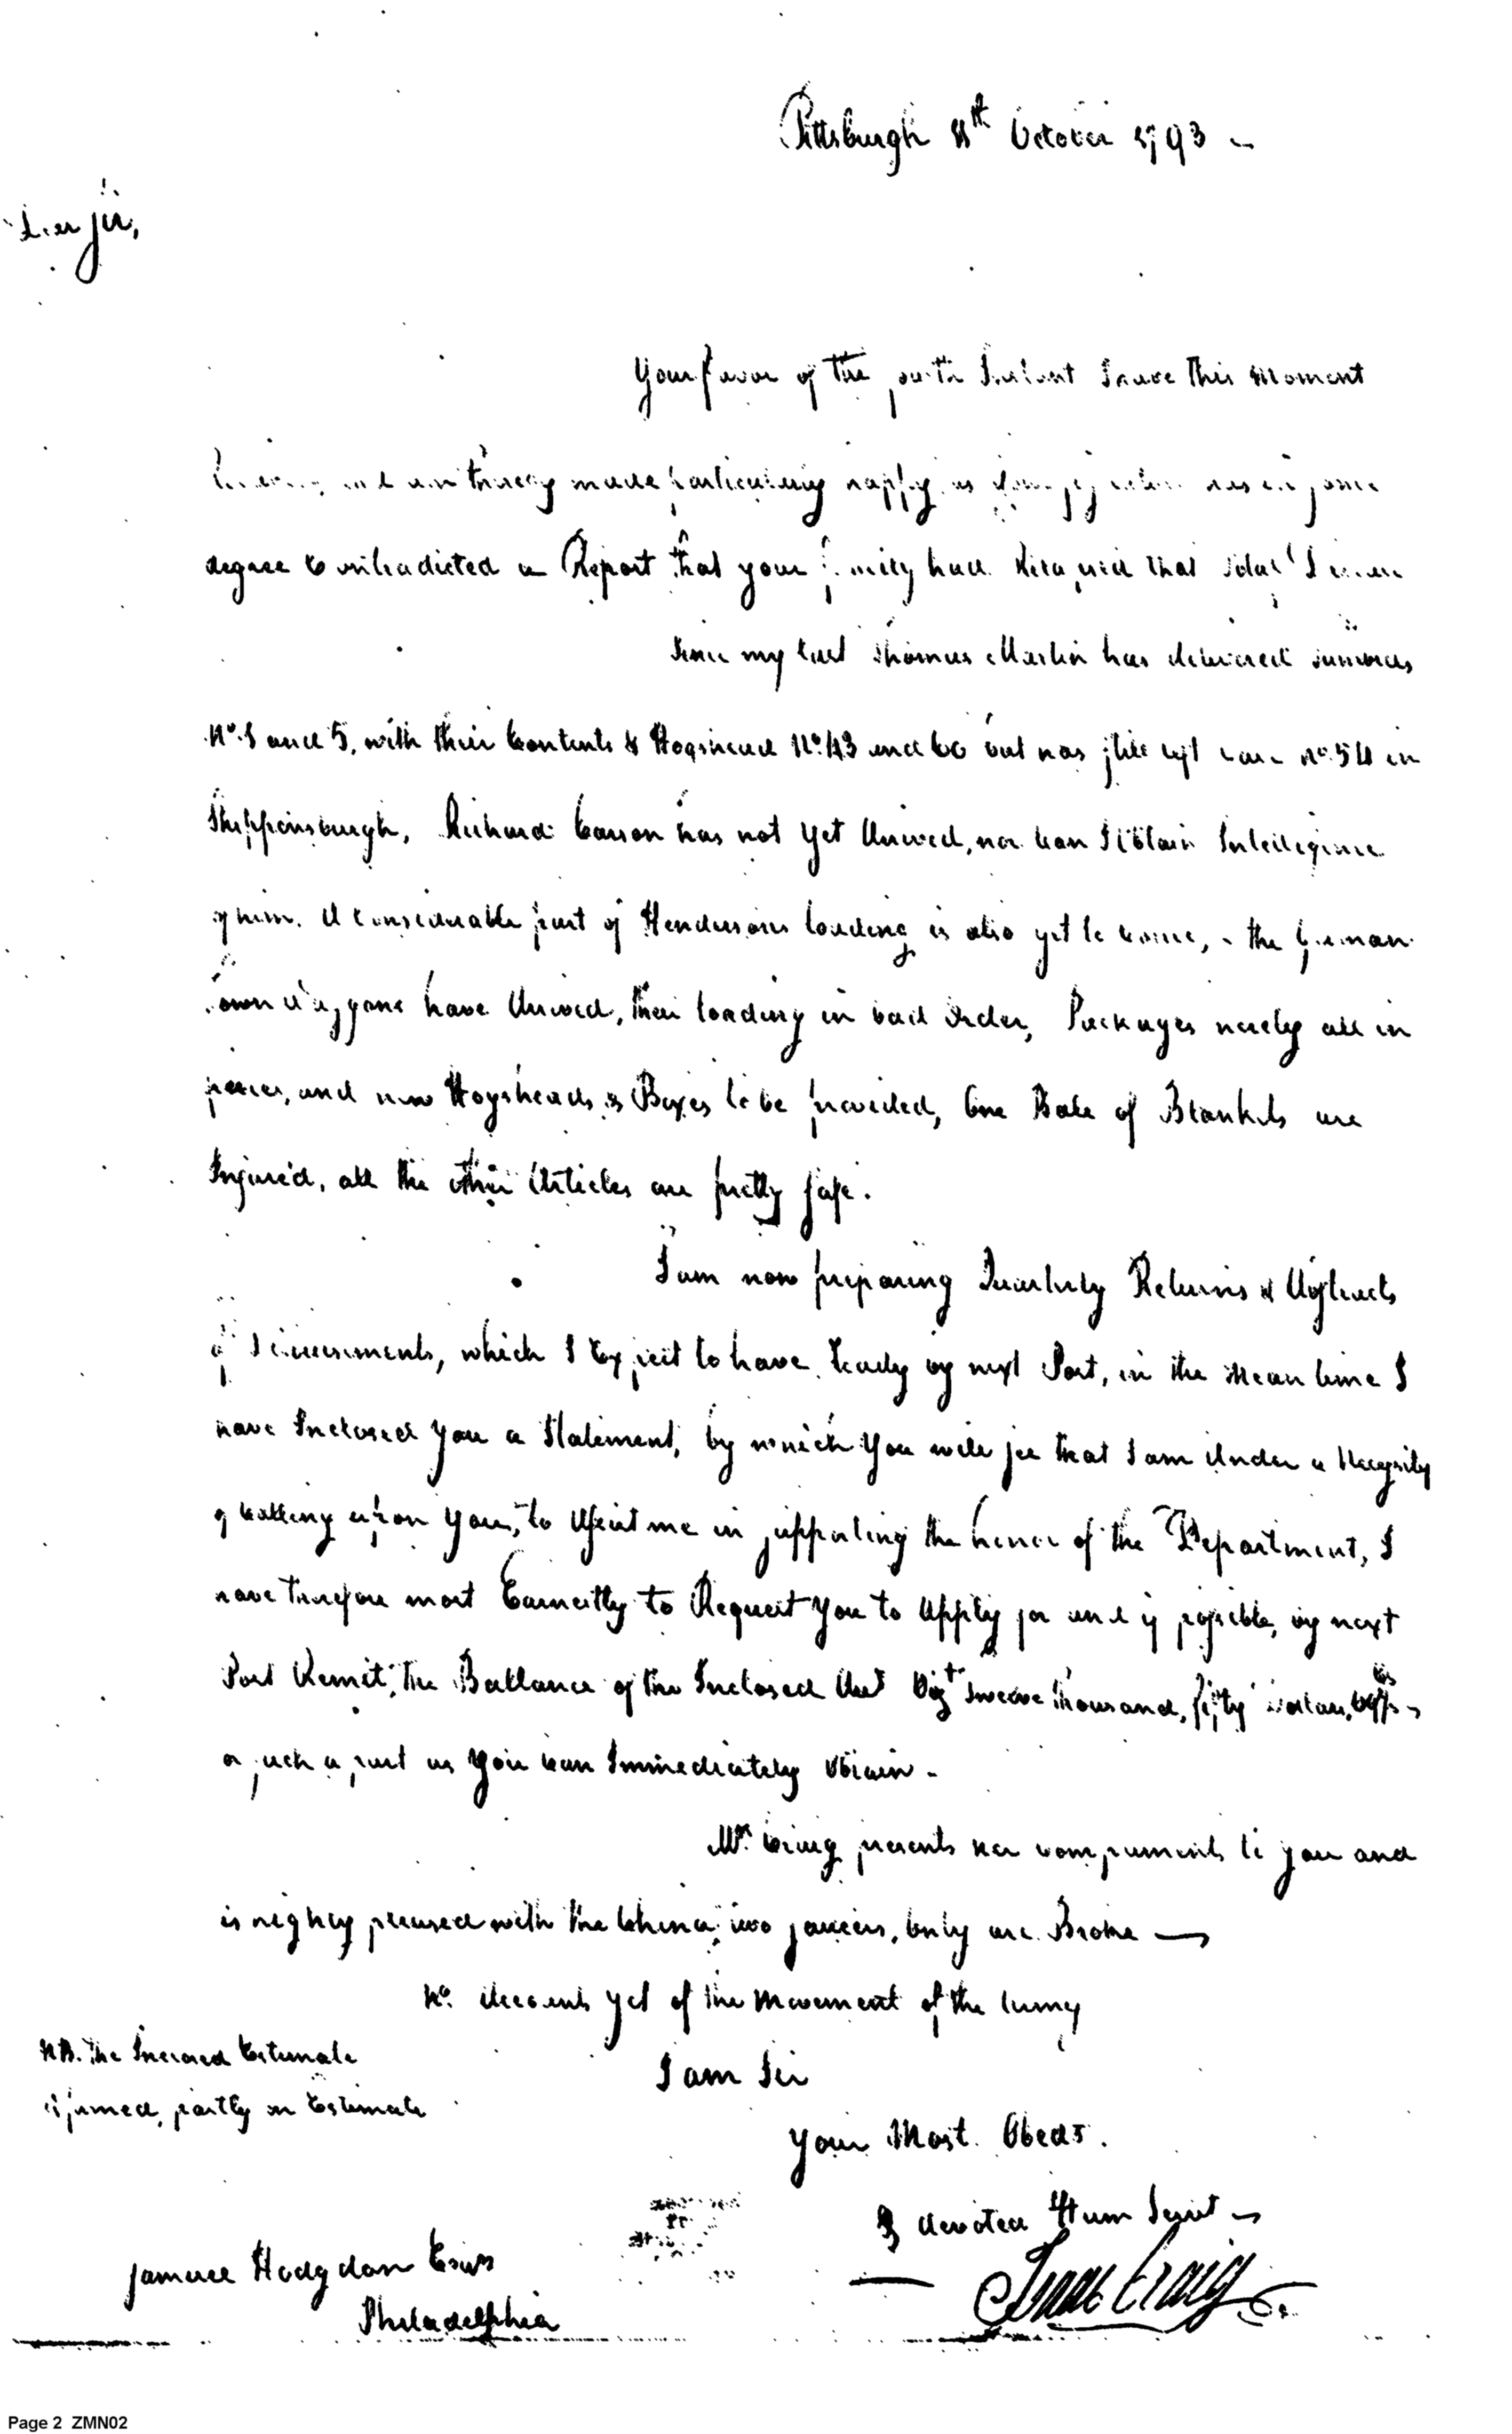 Pittsburgh 11th October 1793 -
Dear Sir,
Your favor of the Instant I have This Moment
and am thereby made particularly happy, as in some
degree Contradicted a Report that your Family had
Since my last Thomas Martin has delivered
No. 1 and 5, with their Contents & Hogshead No. 43 and 60 but has still left Case No. 54 in
Shippensburgh, Richard Carson has not Yet Arrived, nor Can I Obtain Intelligence
of him. A Considerable part of Hendersons loading is also yet to Come, - the German
Town Waggons have Arrived, their loading in bad Order, Packages nearly all in
pieces, and new Hogsheads & Boxes to be provided, One Bale of Blankets are
Injured, all the other Articles are pretty safe.
I am now preparing Quarterly Returns & Abstracts
of Disbursements, which I Expect to have Ready by next Post, in the Mean time I
have Inclosed You a Statement, by which You will see that I am Under a Necessity
of Calling upon You, to Assist me in supporting the honor of the Department, I
have therefore most Earnestly to Request You to Apply for and if possible, by next
Post Remit, the Ballance of the Inclosed Acct Vizt Twelve Thousand, fifty Dollars,
or such a part as You Can Immediately Obtain -
Mrs. Craig presents her Compliments to you and
is highly pleased with the China, two saucers, Only are Broke —
No. Accounts Yet of the Movement of the Army
NB. The Inclosed Estimate
is formed, partly on Estimate
I am Sir
Your Most. Obedt.
& devoted Hum Servt -
Isaac Craig
Samuel Hodgdon Esqr
Philadelphia
Page 2 ZMN02